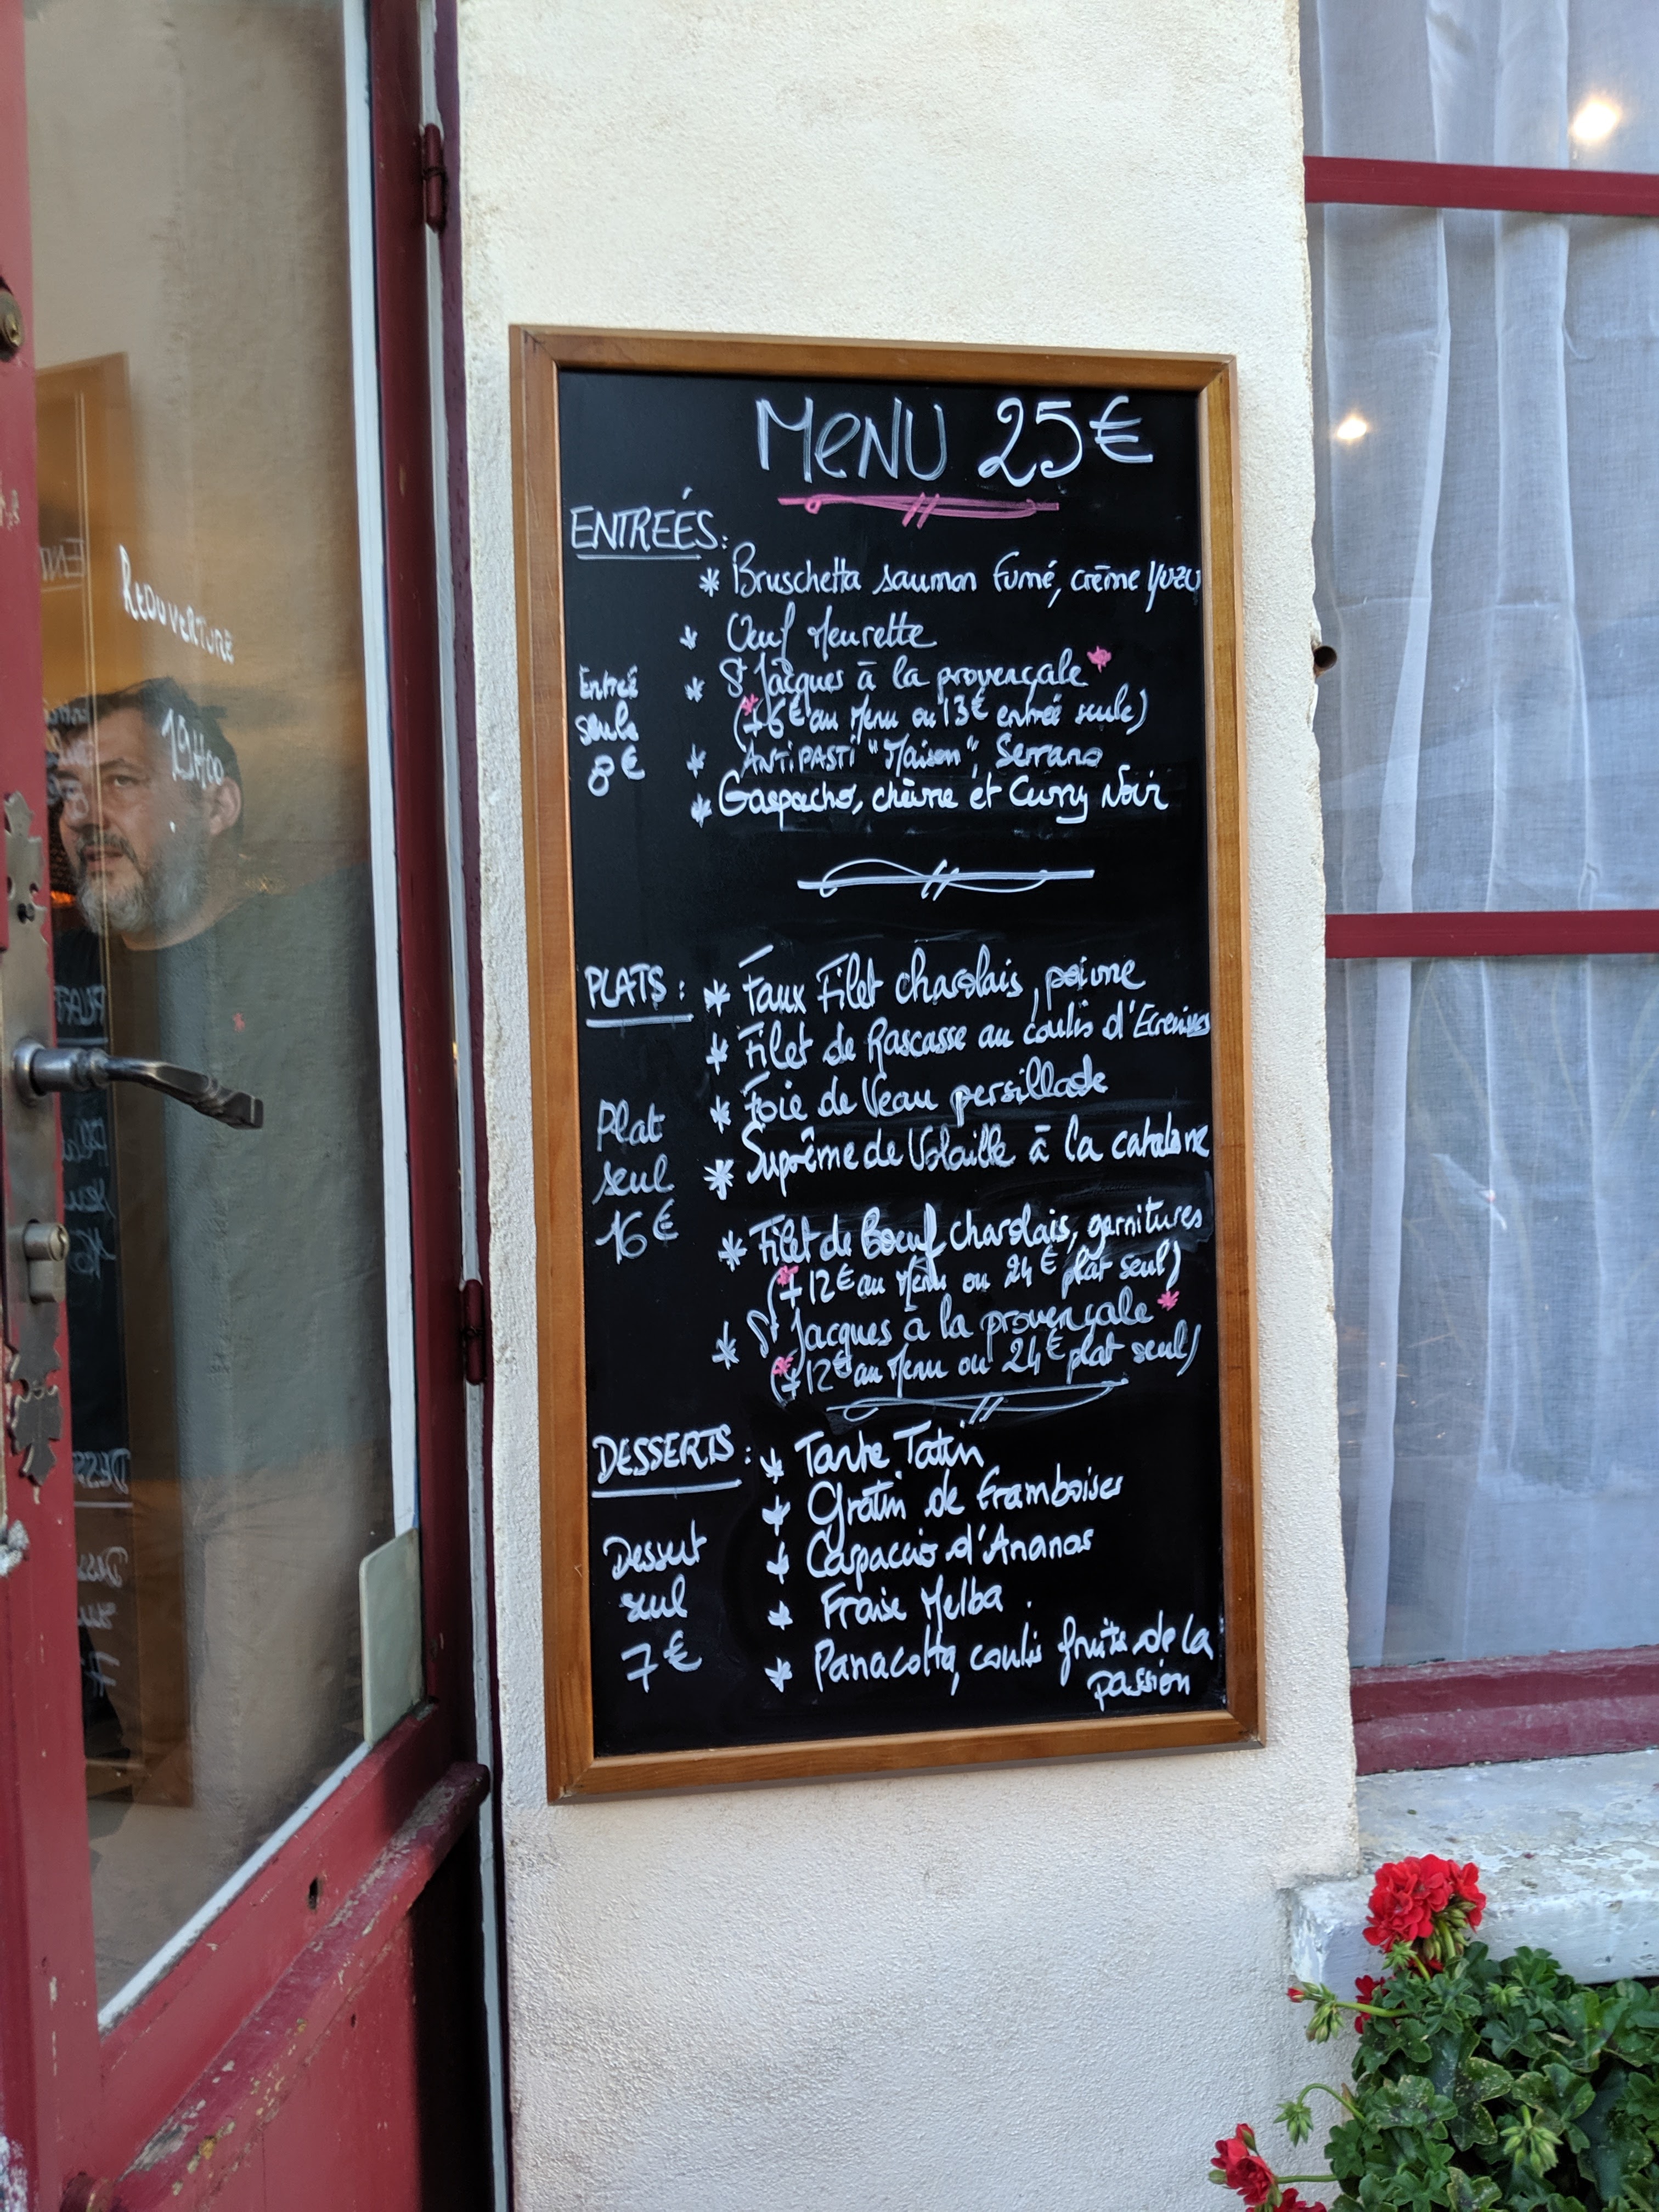 MENU 25€
ENTREÉS:
* Bruschetta saumon fumé, crème yuzu
* Œuf Meurette
* St Jacques à la provençale*
(*+6€ au Menu ou 13€ entreé seule)
* ANTIPASTI "Maison", Serrano
* Gaspacho, chèvre et Curry Noir
Entreé
seule
8€
PLATS: * Faux Filet charolais, poivre
* Filet de Rascasse au coulis d'Ecrevisses
* Foie de Veau persillade
* Suprême de Volaille à la catalane
* Filet de Boeuf charolais, garnitures
(*+12€ au Menu ou 24€ plat seul)
* St Jacques à la provençale*
(*+12€ au Menu ou 24€ plat seul)
Plat
seul
16€
DESSERTS: * Tarte Tatin
* Gratin de framboises
* Carpaccio d'Ananas
* Fraise Melba
* Panacotta, coulis fruits de la
passion
Dessert
seul
7€
REOUVERTURE
19H00